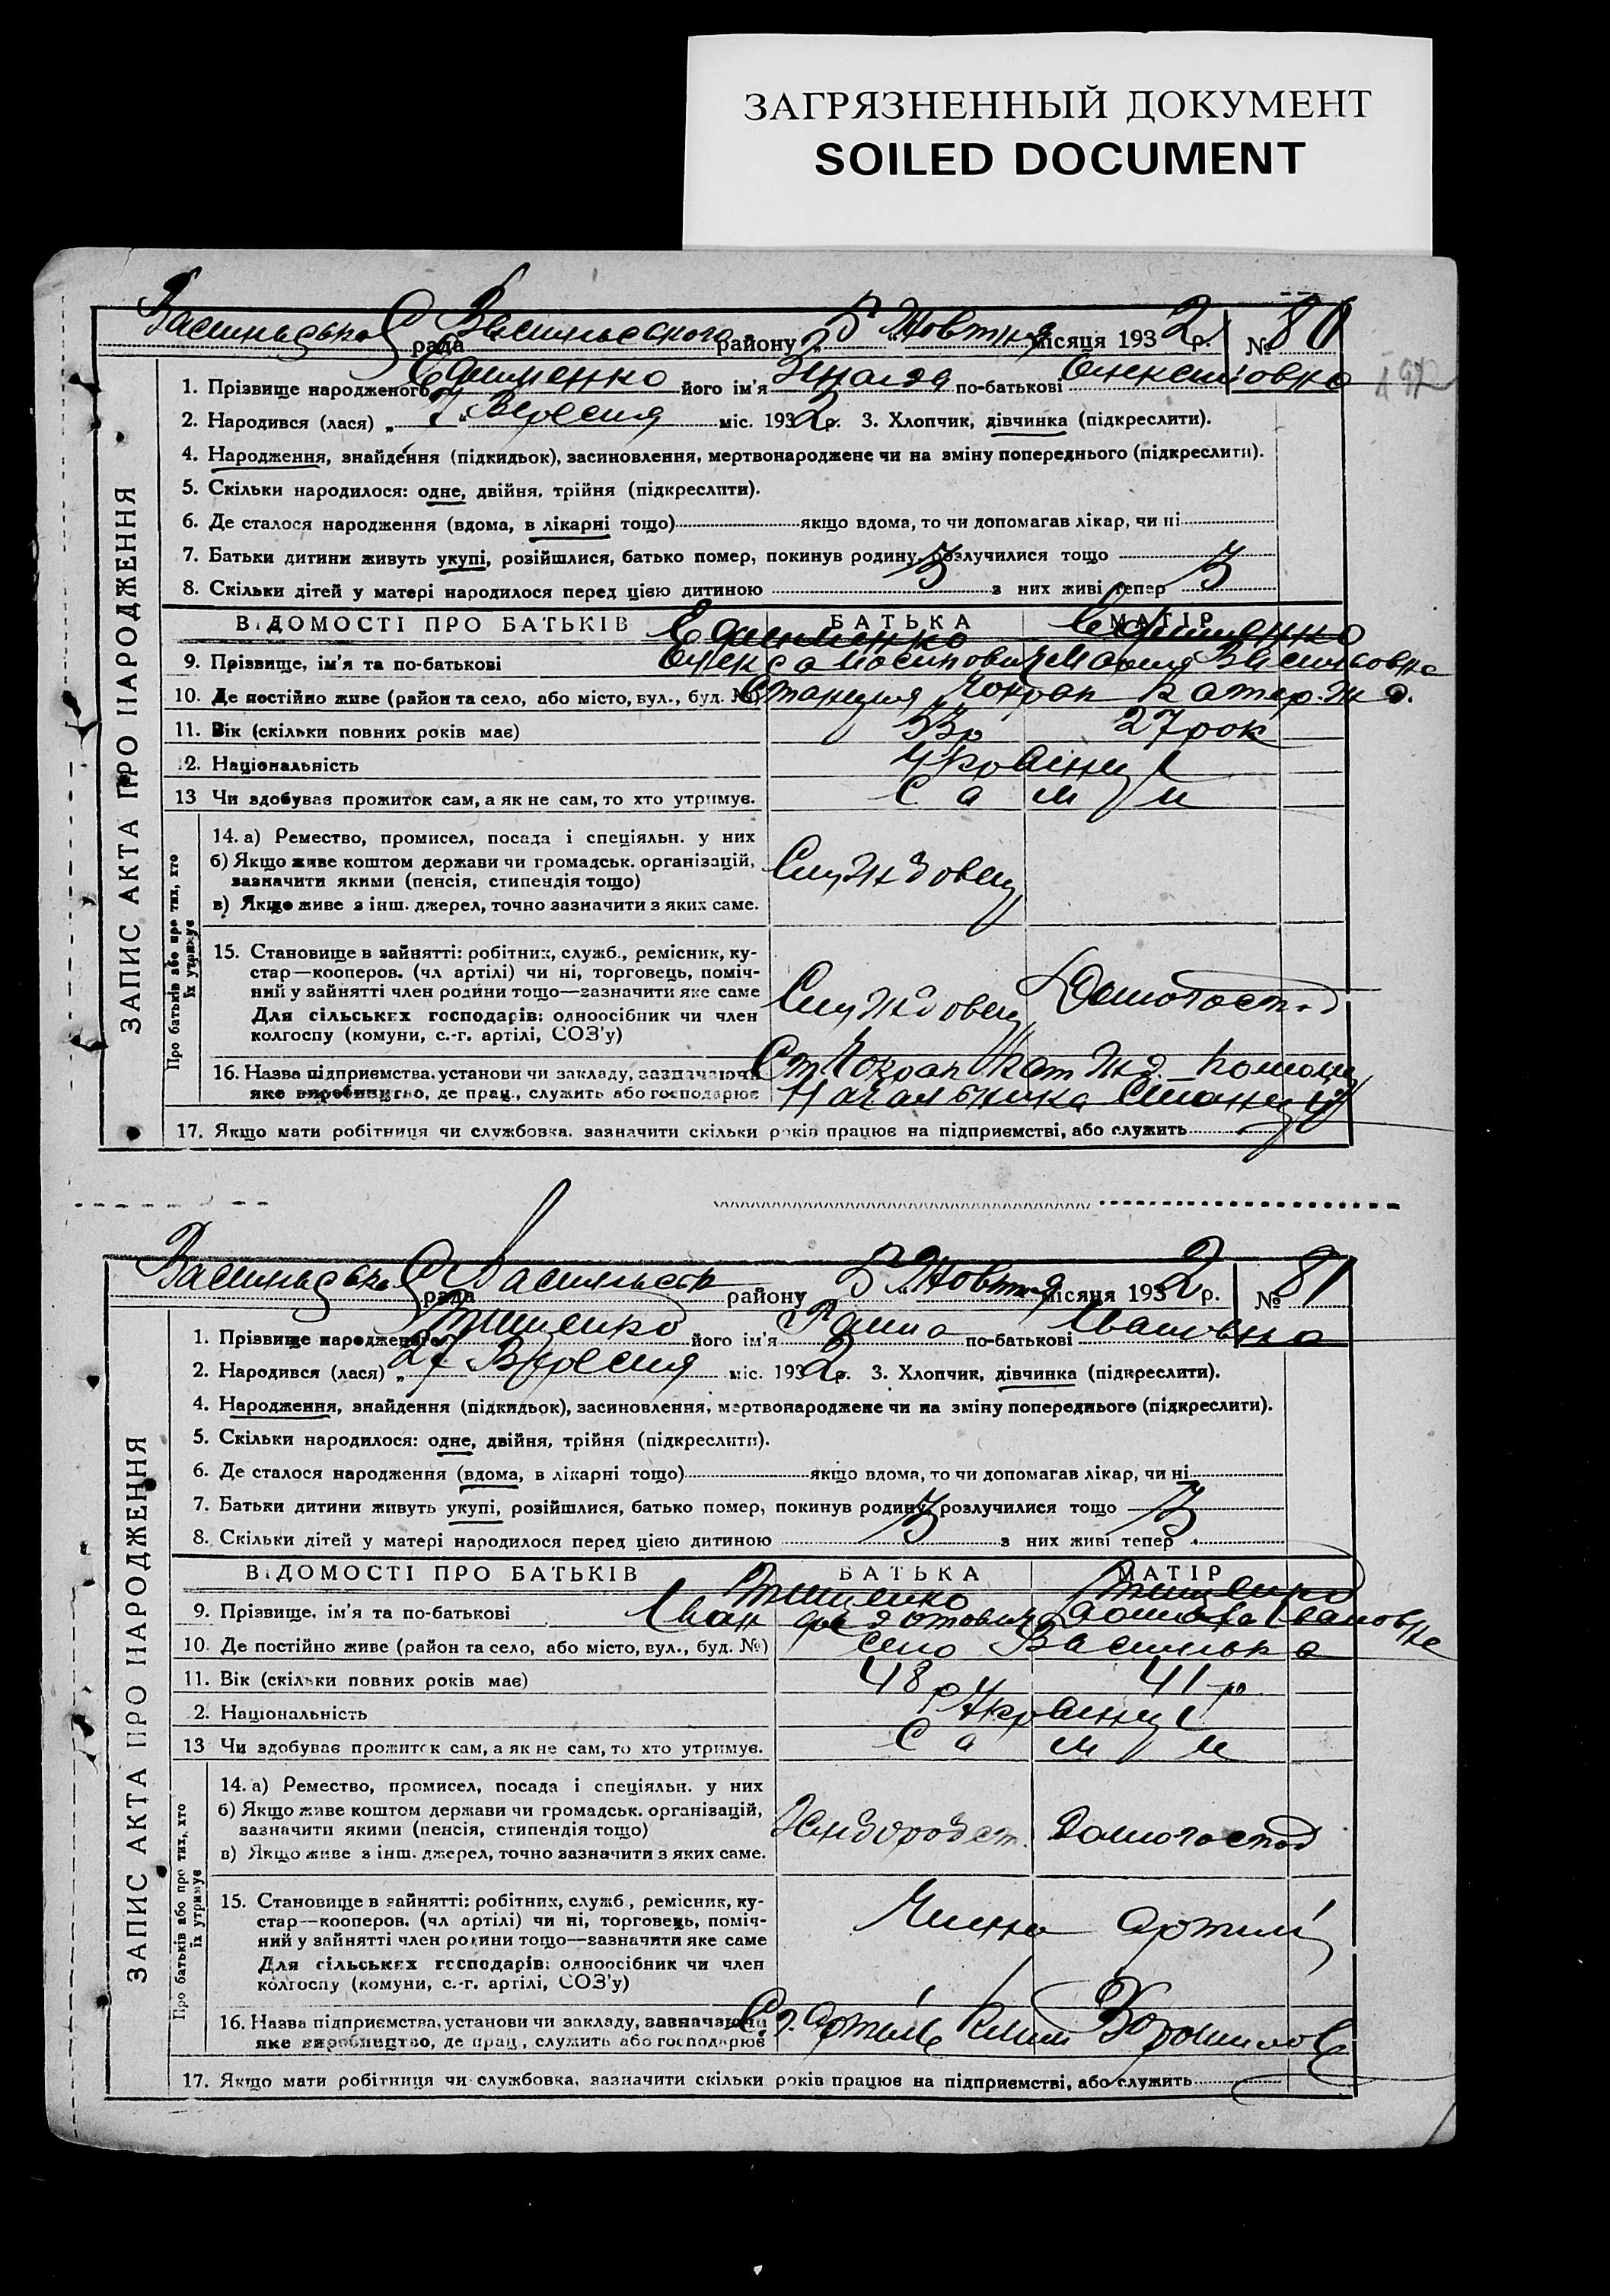 ЗАГРЯЗНЕННЫЙ ДОКУМЕНТ
SOILED DOCUMENT
Васильевська рада Васильевського району „5" Жовтня місяця 1932 р. № 80
1. Прізвище народженого Єфименко його ім'я по-батькові Олексіївна
2. Народився (лася) „7" Вересня міс. 1932 р. 3. Хлопчик, дівчинка (підкреслити).
4. Народження, знайдення (підкидьок), засиновлення, мертвонароджене чи на зміну попереднього (підкреслити).
5. Скільки народилося: одне, двійня, трійня (підкреслити).
6. Де сталося народження (вдома, в лікарні тощо) якщо вдома, то чи допомагав лікар, чи ні
7. Батьки дитини живуть укупі, розійшлися, батько помер, покинув родину, розлучилися тощо
8. Скільки дітей у матері народилося перед цією дитиною 3 з них живі тепер 3
ЗАПИС АКТА ПРО НАРОДЖЕННЯ
ВІДОМОСТІ ПРО БАТЬКІВ БАТЬКА МАТІР
Єфименко Єфименко
9. Прізвище, ім'я та по-батькові Олекса Мария Васильовна
10. Де постійно живе (район та село, або місто, вул., буд. №) Станция Катер. ж д.
11. Вік (скільки повних років має) 33 р 27 рок
12. Національність Українці
13 Чи здобуває прожиток сам, а як не сам, то хто утримує. с а м и
Про батьків або про тих, хто їх утримує
14. а) Ремество, промисел, посада і спеціяльн. у них
б) Якщо живе коштом держави чи громадськ. організацій,
зазначити якими (пенсія, стипендія тощо)
в) Якщо живе з інш. джерел, точно зазначити з яких саме.
Службовец
15. Становище в зайнятті: робітник, служб., ремісник, ку-
стар—кооперов. (чл артілі) чи ні, торговець, поміч-
ний у зайнятті член родини тощо—зазначити яке саме
Для сільських господарів: одноосібник чи член
колгоспу (комуни, с.-г. артілі, СОЗ'у)
Службовец Домогоспод
16. Назва підприємства, установи чи закладу, зазначаючи Ст Кат жд. помощн
яке виробництво, де прац., служить або господарює Начальника Станции
17. Якщо мати робітниця чи службовка, зазначити скільки років працює на підприємстві, або служить
Васильевська рада Васильевськ району „5" Жовтня місяця 1932 р. № 81
1. Прізвище народженого Тищенко його ім'я Ганна по-батькові Ивановна
2. Народився (лася) „27" Вересня міс. 1932 р. 3. Хлопчик, дівчинка (підкреслити).
4. Народження, знайдення (підкидьок), засиновлення, мертвонароджене чи на зміну попереднього (підкреслити).
5. Скільки народилося: одне, двійня, трійня (підкреслити).
6. Де сталося народження (вдома, в лікарні тощо) якщо вдома, то чи допомагав лікар, чи ні
7. Батьки дитини живуть укупі, розійшлися, батько помер, покинув родину, розлучилися тощо
8. Скільки дітей у матері народилося перед цією дитиною 3 з них живі тепер 3
ЗАПИС АКТА ПРО НАРОДЖЕННЯ
ВІДОМОСТІ ПРО БАТЬКІВ БАТЬКА МАТІР
Тищенко Тищенко
9. Прізвище, ім'я та по-батькові Іван Федотович Ивановна
10. Де постійно живе (район та село, або місто, вул., буд. №) село Васильвка
11. Вік (скільки повних років має) 48 р 41 р
12. Національність Українці
13 Чи здобуває прожиток сам, а як не сам, то хто утримує. с а м и
Про батьків або про тих, хто їх утримує
14. а) Ремество, промисел, посада і спеціяльн. у них
б) Якщо живе коштом держави чи громадськ. організацій,
зазначити якими (пенсія, стипендія тощо)
в) Якщо живе з інш. джерел, точно зазначити з яких саме.
Домогоспод
15. Становище в зайнятті: робітник, служб., ремісник, ку-
стар—кооперов. (чл артілі) чи ні, торговець, поміч-
ний у зайнятті член родини тощо—зазначити яке саме
Для сільських господарів: одноосібник чи член
колгоспу (комуни, с.-г. артілі, СОЗ'у)
Члени Артілі
16. Назва підприємства, установи чи закладу, зазначаючи С. г. Артіль Клим Ворошилов
яке виробництво, де прац., служить або господарює
17. Якщо мати робітниця чи службовка, зазначити скільки років працює на підприємстві, або служить